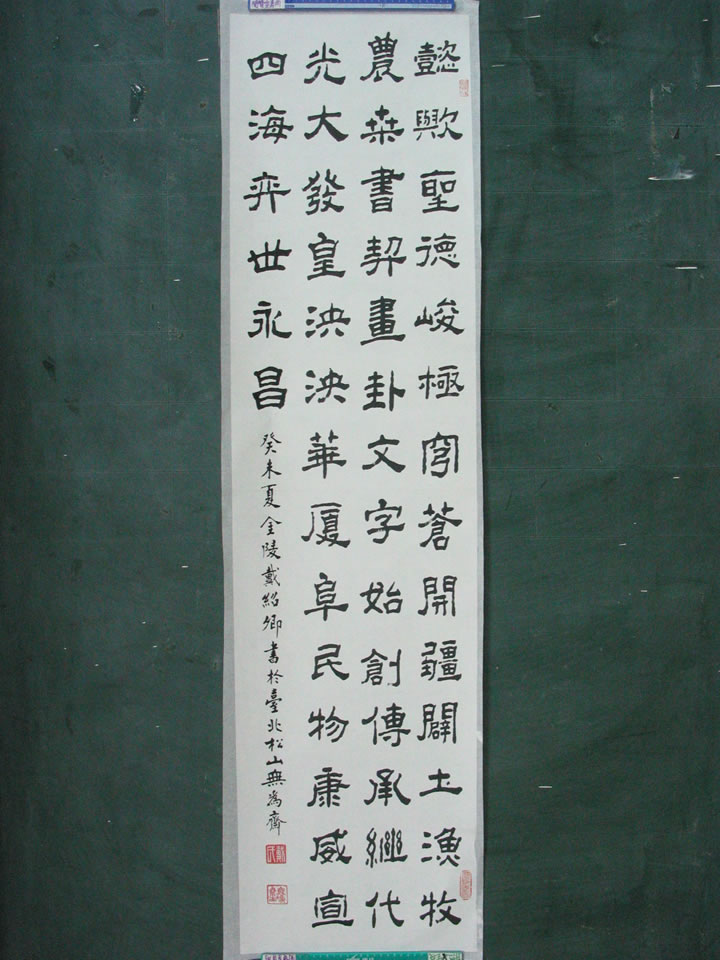 懿歟聖德峻極穹蒼開疆闢土漁牧
農桒書契畫卦文字始創傳承繼代
光大發皇泱泱華厦阜民物康威宣
四海弈世永昌
癸未夏金陵戴紹卿書於臺北松山無為齋